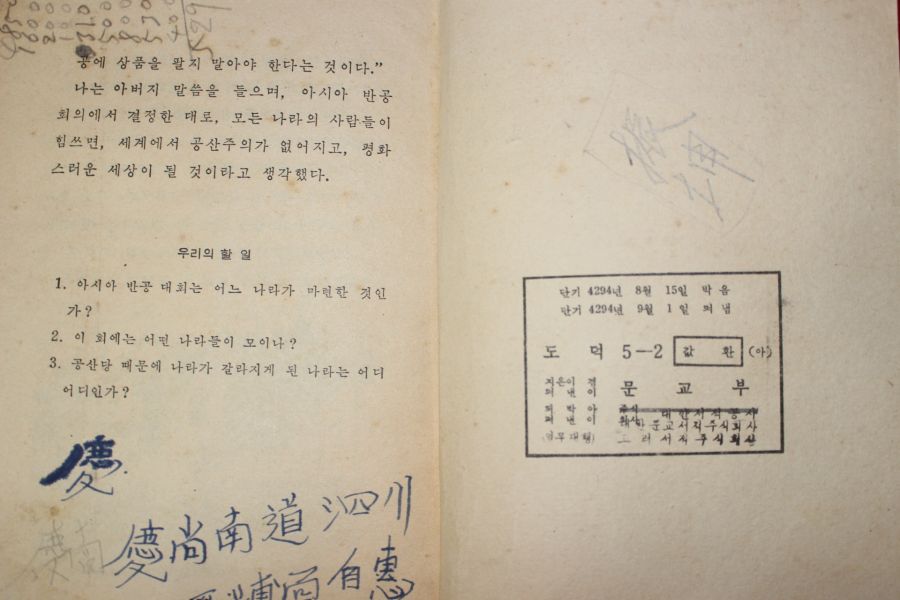 공에 상품을 팔지 말아야 한다는 것이다.”
나는 아버지 말씀을 들으며, 아시아 반공
회의에서 결정한 대로, 모든 나라의 사람들이
힘쓰면, 세계에서 공산주의가 없어지고, 평화
스러운 세상이 될 것이라고 생각했다.
우리의 할 일
1. 아시아 반공 대회는 어느 나라가 마련한 것인
가?
2. 이 회에는 어떤 나라들이 모이나?
3. 공산당 때문에 나라가 갈라지게 된 나라는 어디
어디인가?
慶
慶尚南道 泗川
自惠
단기 4294년 8월 15일 박음
단기 4294년 9월 1일 펴냄
도덕 5—2 값 환 (아)
지은이 겸
펴낸이 문교부
대한서적공사
문교서적주식회사